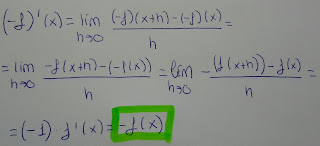 (-f)'(x) = lim h→0 (-f)(x+h) - (-f)(x) / h =
= lim h→0 -f(x+h) - (-f(x)) / h = lim h→0 -(f(x+h)) - f(x) / h =
= (-1) · f'(x) = -f(x)